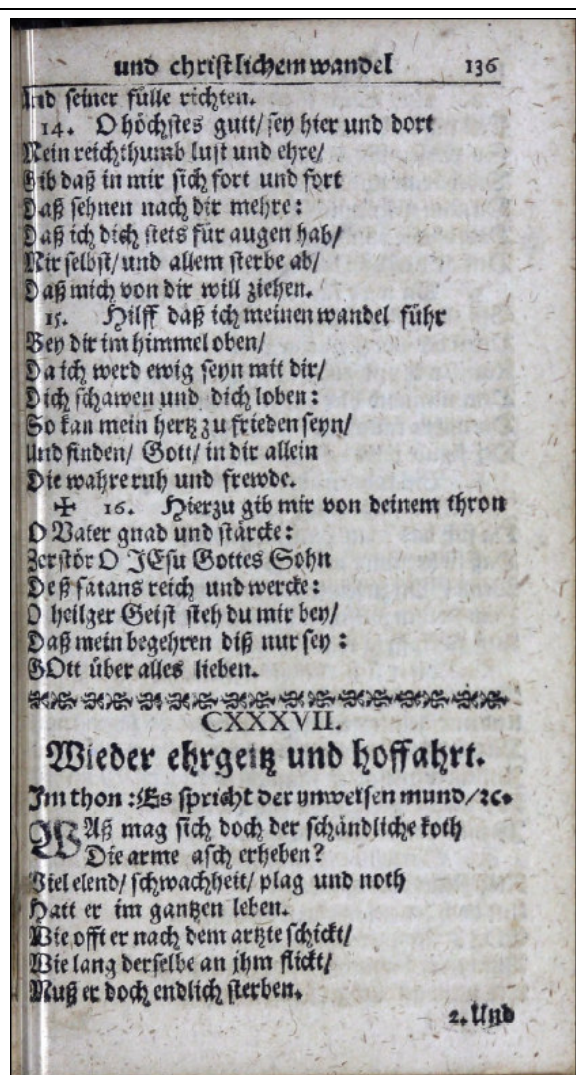 und christlichem wandel 136
Und seiner fülle richten.
14. O höchstes gutt/ sey hier und dort
Mein reichthumb lust und ehre/
Gib daß in mir sich fort und fort
Daß sehnen nach dir mehre:
Daß ich dich stets für augen hab/
Mir selbst/ und allem sterbe ab/
Daß mich von dir will ziehen.
15. Hilff daß ich meinen wandel führ
Bey dir im himmel oben/
Da ich werd ewig seyn mit dir/
Dich schawen und dich loben:
So kan mein hertz zu frieden seyn/
Und finden/ Gott/ in dir allein
Die wahre ruh und frewde.
✠ 16. Hierzu gib mir von deinem thron
O Vater gnad und stärcke:
Zerstör O JEsu Gottes Sohn
Deß satans reich und wercke:
O heilger Geist steh du mir bey/
Daß mein begehren diß nur sey:
GOtt über alles lieben.
CXXXVII.
Wieder ehrgeitz und hoffahrt.
Im thon: Es spricht der unweisen mund/ ꝛc.
WAß mag sich doch der schändliche koth
Die arme asch erheben?
Viel elend/ schwachheit/ plag und noth
Hatt er im gantzen leben.
Wie offt er nach dem artzte schickt/
Wie lang derselbe an ihm flickt/
Muß er doch endlich sterben.
2. Und